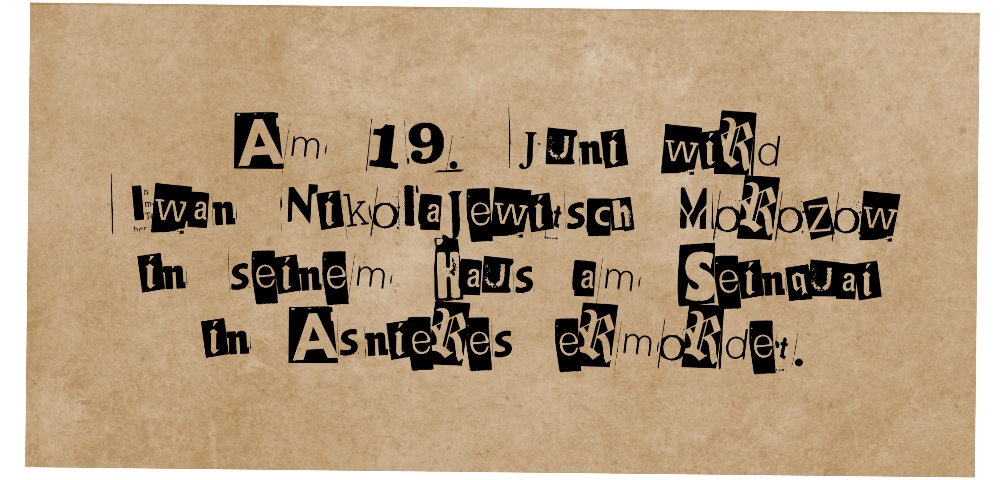 Am 19. Juni wird
Iwan Nikolajewitsch Morozow
in seinem Haus am Seinquai
in Asnieres ermordet.